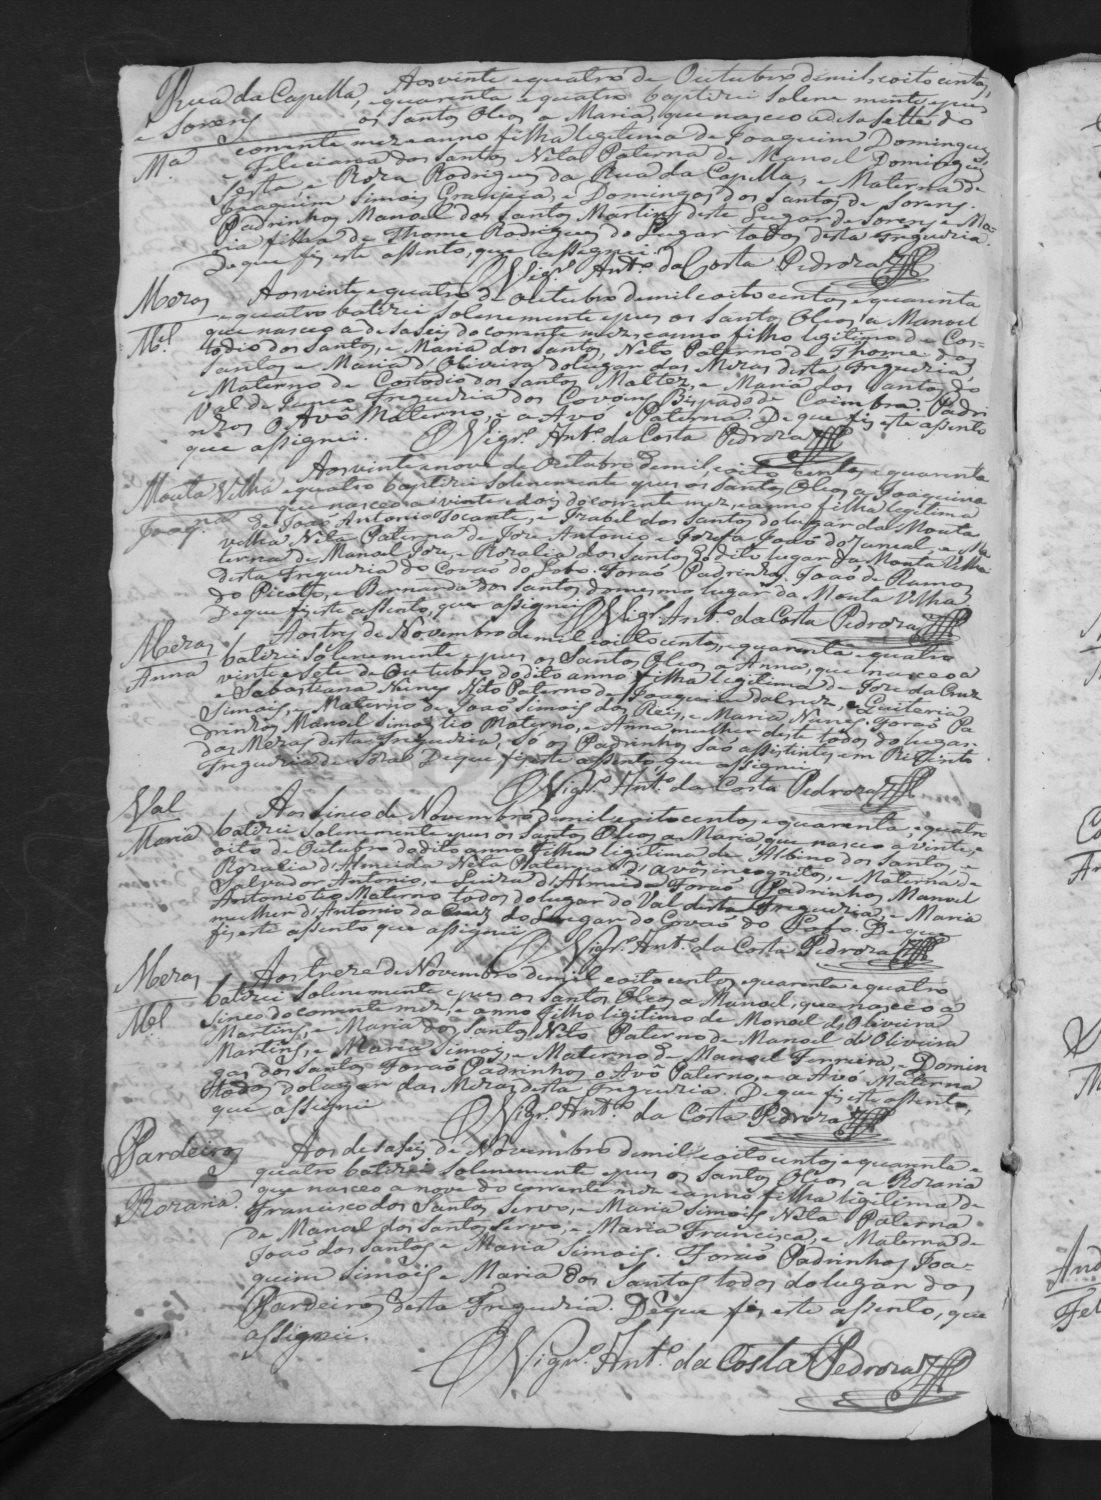 Rua da Capella, e Sorens
Mª
Aos vinte e quatro de Outubro de mil, e oito centos,
e quarenta e quatro baptizei solene mente, e pus
os Santos Oleos a Maria, que nasceo a desasette do
corrente mez e anno filha legitima de Joaquim Domingues,
e Feliciana dos Santos, Neta Paterna de Manoel Domingues
Testa, e Roza Rodrigues da Rua da Capella, e Materna de
Joaquim Simois e Domingas dos Santos de Sorens.
Padrinhos Manoel dos Santos Martins deste Lugar de Sorens, e Ma-
ria filha de Thome Rodrigues do Lugar todos desta Freguezia.
De que fiz este assento, que assignei.
O Vigrº. Antº. da Costa Pedroza
Mezas
Mel
Aos vinte e quatro de Outubro de mil e oito centos, e quarenta
e quatro batizei solenemente e pus os Santos Oleos a Manoel
que nasceo a desaseis do corrente mez, e anno filho legitimo de Cos-
todio dos Santos, e Maria dos Santos, Neto Paterno de Thome dos
Santos e Maria d'Oliveira do lugar das Mezas desta Freguezia,
e Materno de Costodio dos Santos Maltez, e Maria dos Santos do
Val de Junco Freguezia dos Covoens Bispado de Coimbra. Padri
nhos O Avô Materno, e a Avó Paterna. De que fiz este assento
que assignei.
O Vigrº. Antº. da Costa Pedroza
Mouta Velha
Joaqna
Aos vinte e nove de Outubro de mil, e oito centos, e quarenta
e quatro baptizei solenemente e pus os Santos Oleos a Joaquina
que nasceo a vinte e dois do corrente mez, e anno filha legitima
de João Antonio Tocante, e Izabel dos Santos do lugar da Mouta
velha Neta Paterna de Joze Antonio, e Jozefa João do Juncal, e Ma
terna de Manoel Joze, e Rozalia dos Santos do dito lugar da Mouta Velha
desta Freguezia do Covão do Lobo. Forão Padrinhos João de Ramos
do Picoto, e Bernarda dos Santos do mesmo lugar da Mouta Velha
De que fiz este assento, que assignei
O Vigrº. Antº. da Costa Pedroza
Mezas
Anna
Aos tres de Novembro de mil e oito centos, e quarenta e quatro
batizei solenemente e pus os Santos Oleos a Anna, que nasceo a
vinte e sete de Outubro do dito anno filha legitima de Joze da Cruz
e Sebastiana Nunes Neta Paterna de Joaquim da Cruz, e Quiteria
Simois, e Materno de João Simois dos Reis, e Maria Nunes. Forão Pa
drinhos Manoel Simois tio Materno, e Anna mulher deste todos do lugar
das Mezas desta Freguezia, só os Padrinhos são assistentes em
Freguezia de Soza. De que fiz este assento, que assignei
O Vigrº. Antº. da Costa Pedroza
Val
Maria
Aos sinco de Novembro de mil e oito centos, e quarenta, e quatro
batizei solenemente e pus os Santos Oleos a Maria, que nasceo a vinte, e
oito de Outubro do dito anno filha legitima de Albino dos Santos, e
Rozalia d'Almeida Neta Paterna d'avôs incognitos, e Materna de
Salvador Antonio, e Luiza d'Almeida Forão Padrinhos Manoel
Antonio tio Materno todos do lugar do Val desta Freguezia, e Maria
mulher d'Antonio da Cruz do Lugar do Covão do Lobo. De que
fiz este assento que assignei
O Vigrº. Antº. da Costa Pedroza
Mezas
Mel
Aos treze de Novembro de mil e oito centos, e quarenta e quatro
batizei solenemente e pus os Santos Oleos a Manoel, que nasceo a
sinco do corrente mez, e anno filho legitimo de Manoel d'Oliveira
Martins, e Maria dos Santos, Neto Paterno de Manoel de Oliveira
Martins, e Maria Simois, e Materno de Manoel Ferreira, e Domin
gas dos Santos Forão Padrinhos o Avô Paterno, e a Avó Materna
todos do lugar das Mezas desta Freguezia. De que fiz este assento,
que assignei
O Vigrº. Antº. da Costa Pedroza
Pardeiros
Rozaria.
Aos desaseis de Novembro de mil e oito centos, e quarenta e
quatro batizei solenemente e pus os Santos Oleos a Rozaria
que nasceo a nove do corrente mez e anno filha legitima de
Francisco dos Santos Servo, e Maria Simois Neta Paterna
de Manoel dos Santos Servo, e Maria Francisca, e Materna de
João dos Santos e Maria Simois. Forão Padrinhos Joa-
quim Simois, e Maria dos Santos todos do lugar dos
Pardeiros desta Freguezia. De que fiz este assento, que
assignei.
O Vigrº. Antº. da Costa Pedroza